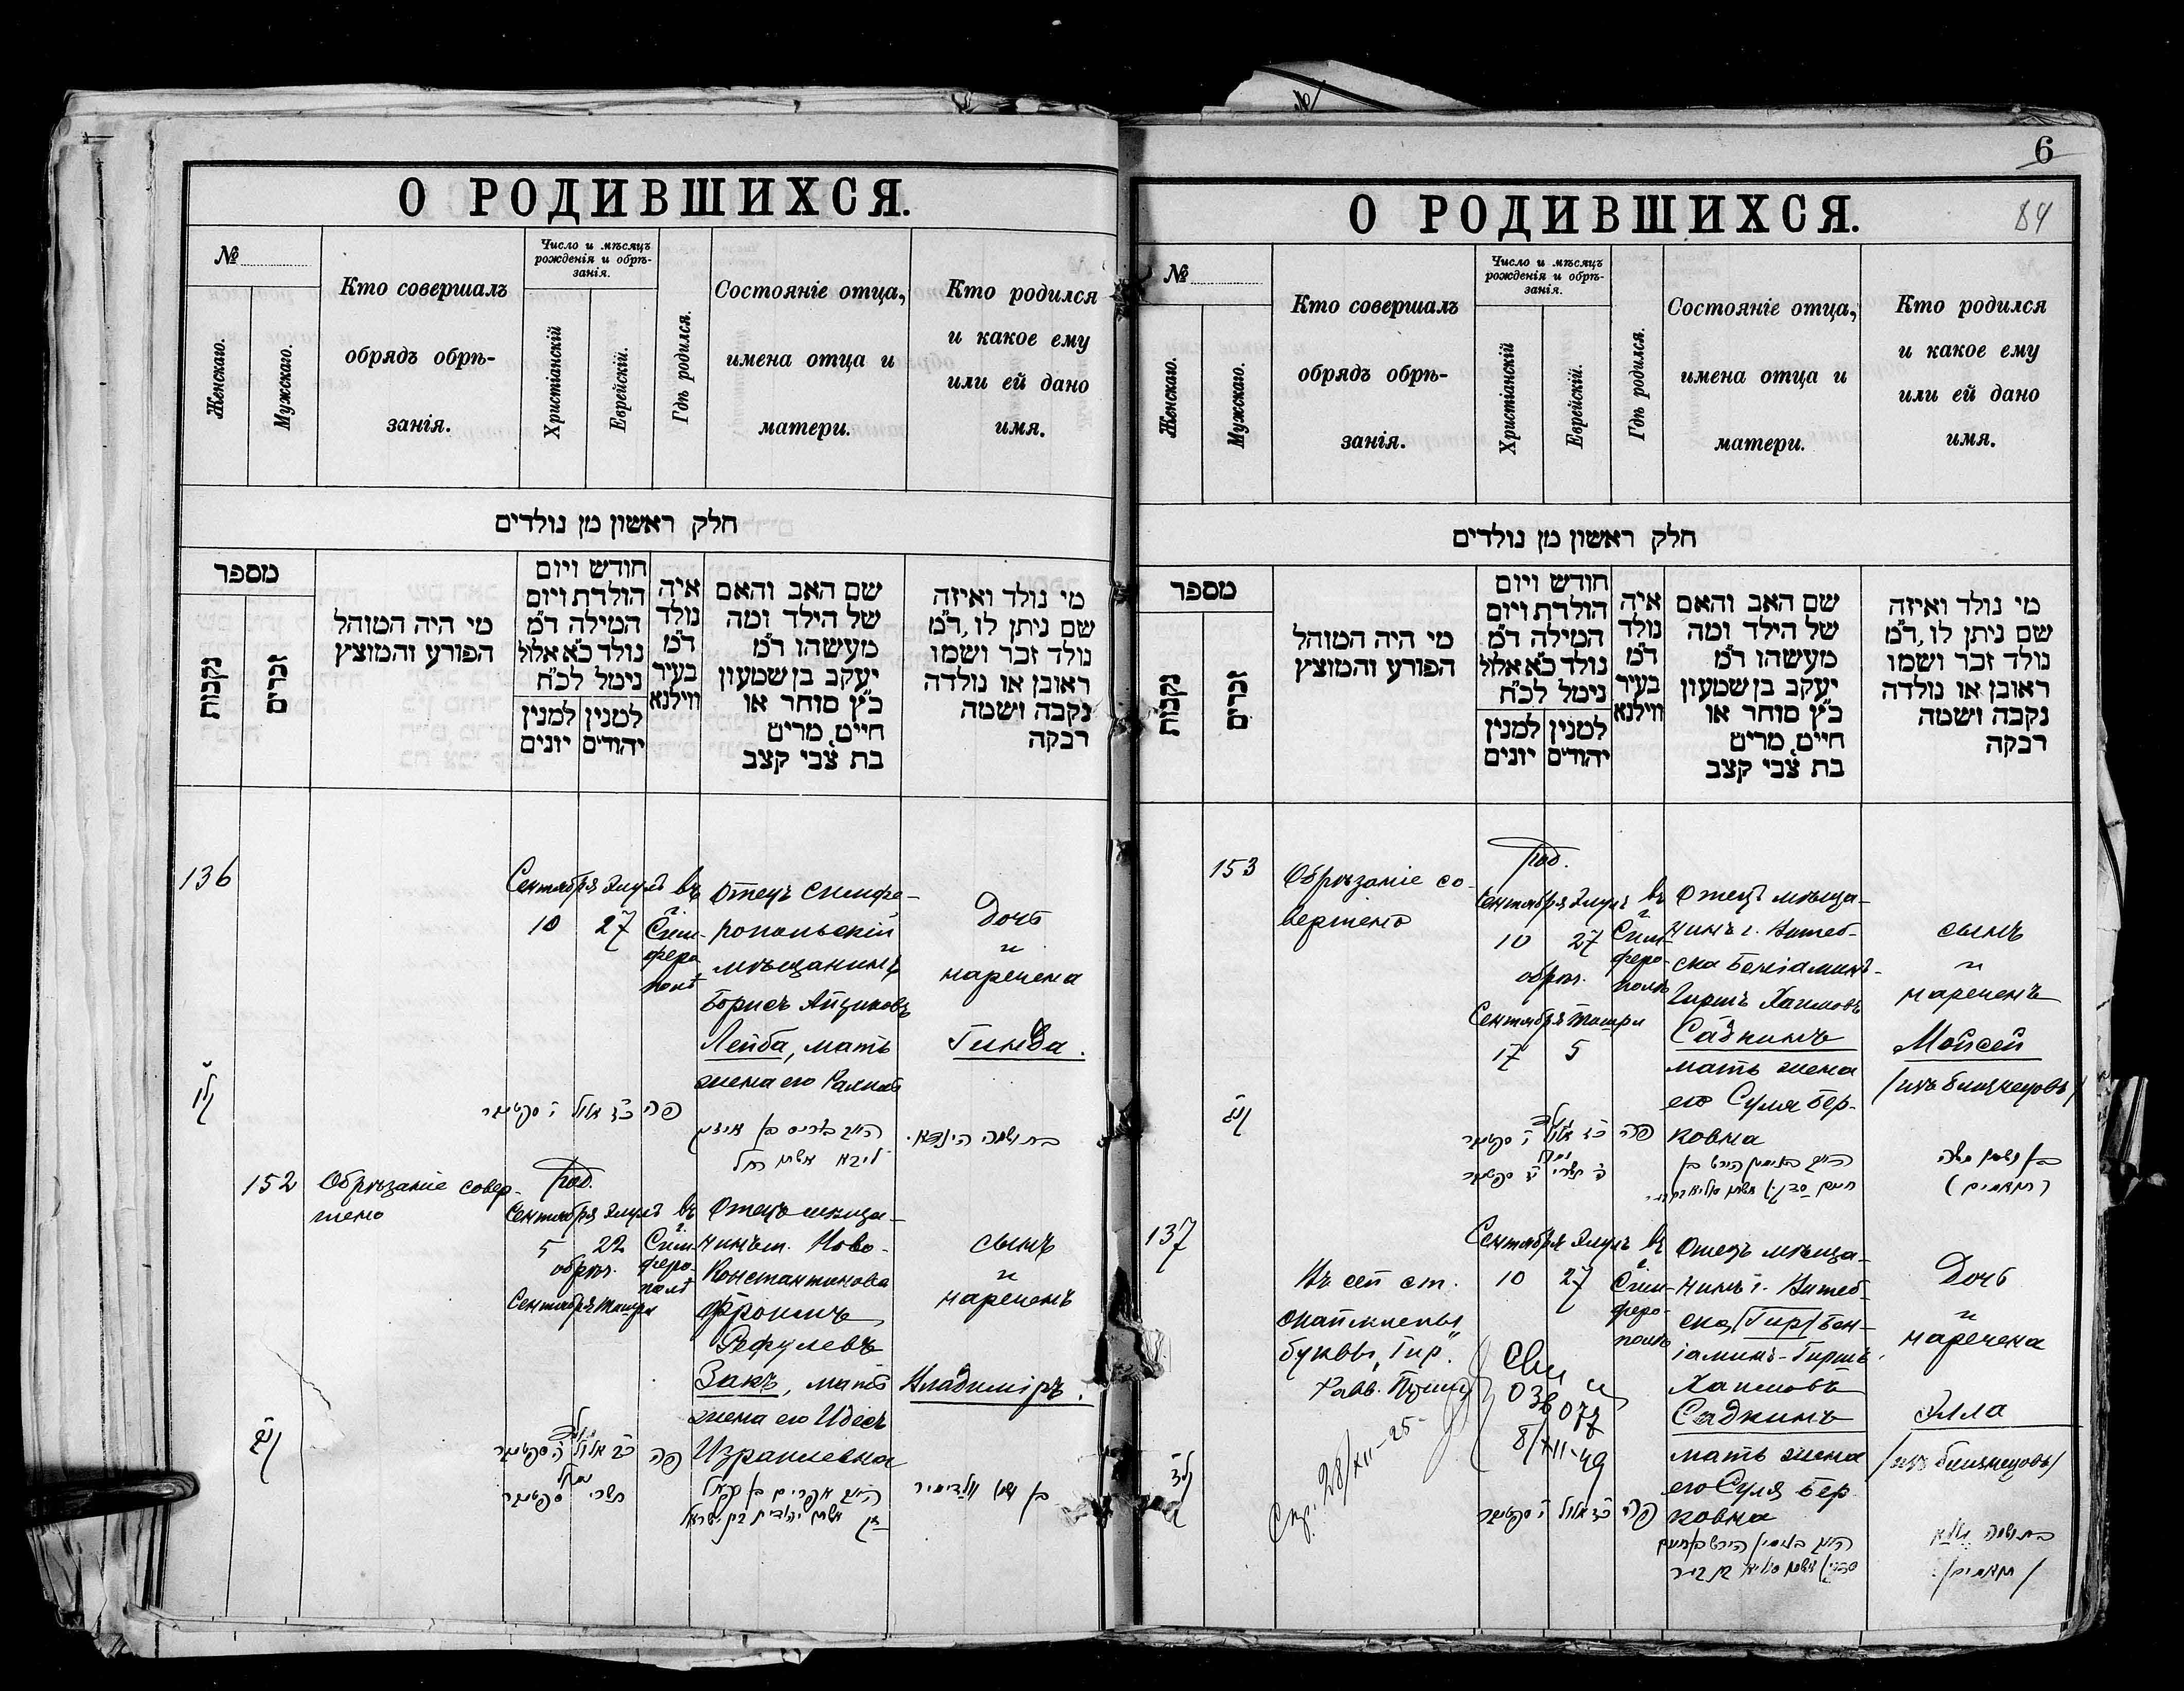 О РОДИВШИХСЯ.
№
Женскаго.
Мужскаго.
Кто совершалъ
обрядъ обрѣ-
занія.
Число и мѣсяцъ
рожденія и обрѣ-
занія.
Христіанскій
Еврейскій.
Гдѣ родился.
Состояніе отца,
имена отца и
матери.
Кто родился
и какое ему
или ей дано
имя.
חלק ראשון מן נולדים
מספר
נקבות
זכרים
מי היה המוהל
הפורע והמוצץ
חודש ויום
הולדת ויום
המילה ד״מ
נולד כ״א אלול
נימל לכ״ח
למנין
יונים
למנין
יהודים
איה
נולד
ד״מ
בעיר
ווילנא
שם האב והאם
של הילד ומה
מעשהו ד״מ
יעקב בן שמעון
כ״ץ סוחר או
חייט, מרים
בת צבי קצב
מי נולד ואיזה
שם ניתן לו, ד״מ
נולד זכר ושמו
ראובן או נולדה
נקבה ושמה
רבקה
136
Сентября Элулъ
10 27
въ
г.
Сим-
феро
полѣ
Отецъ симфе-
ропольскій
мѣщанинъ
Борисъ Айзиковъ
Лейба, мать
жена его Рахиль
Дочь
и
наречена
Гинда.
פה כ״ז אלול י׳ סקטמבר
152
Обрѣзаніе совер-
шено
Род.
Сентября Элулъ
5 22
обрѣз.
Сентября Тишри
въ
г.
Сим-
феро-
полѣ
Отецъ мѣща-
нинъ м. Ново-
Константинова
Фроимъ
Рефулевъ
Закъ, мать
жена его Идесъ
Израилевна
сынъ
и
нареченъ
Владиміръ.
פה
בן ושמו וולדימיר
6
84
О РОДИВШИХСЯ.
№
Женскаго.
Мужскаго.
Кто совершалъ
обрядъ обрѣ-
занія.
Число и мѣсяцъ
рожденія и обрѣ-
занія.
Христіанскій
Еврейскій.
Гдѣ родился.
Состояніе отца,
имена отца и
матери.
Кто родился
и какое ему
или ей дано
имя.
חלק ראשון מן נולדים
מספר
נקבות
זכרים
מי היה המוהל
הפורע והמוצץ
חודש ויום
הולדת ויום
המילה ד״מ
נולד כ״א אלול
נימל לכ״ח
למנין
יונים
למנין
יהודים
איה
נולד
ד״מ
בעיר
ווילנא
שם האב והאם
של הילד ומה
מעשהו ד״מ
יעקב בן שמעון
כ״ץ סוחר או
חייט, מרים
בת צבי קצב
מי נולד ואיזה
שם ניתן לו, ד״מ
נולד זכר ושמו
ראובן או נולדה
נקבה ושמה
רבקה
153
Обрѣзаніе со-
вершено
Род.
Сентября Элулъ
10 27
обрѣз.
Сентября Тишри
17 5
въ
г.
Сим-
феро-
полѣ
Отецъ мѣща-
нинъ г. Витеб-
ска Беніаминъ-
Гиршъ Хаимовъ
Садкинъ
мать жена
его Суля Бер-
ковна
сынъ
и
нареченъ
Мойсей
/изъ близнецовъ/
137
Въ сей ст.
буквы „Гир"
Сентября Элулъ
10 27
въ
г.
Сим-
феро-
полѣ
Отецъ мѣща-
нинъ г. Витеб-
ска /Гир/ Бен-
іаминъ-Гиршъ
Хаимовъ
Садкинъ
мать жена
его Суля Бер
ковна
Дочь
и
наречена
Элла
/изъ близнецовъ/
Сви
036077
8/XII-49
Спр. 28/XII-25
פה כ״ז אלול י׳ סקטמבר